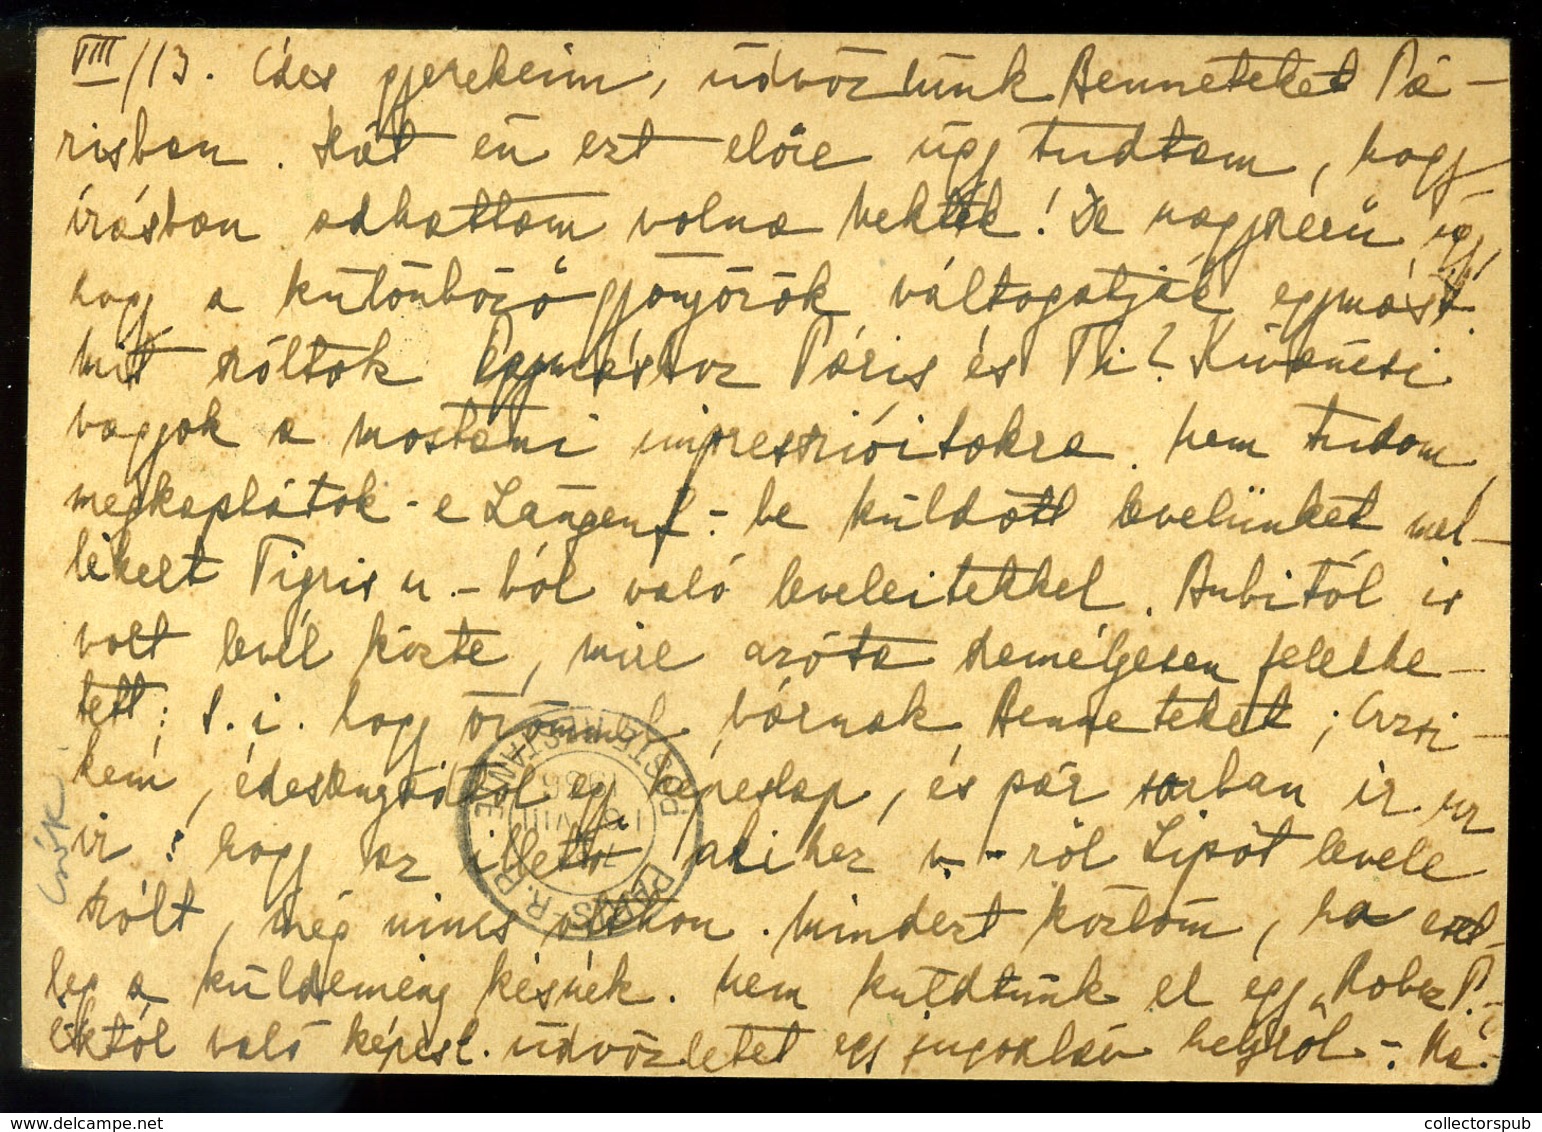 VIII/13. Édes gyerekeim, üdvözlünk Benneteket Pá-
risban. Hát én ezt előre úgy tudtam, hogy
írásban adhattam volna Nektek! De nagyszerű, úgy,
hogy a különböző gyönyörök váltogatják egymást.
Mit szóltok Egymáshoz Páris és Ti? Kíváncsi
vagyok a mostani impresszióitokra. Nem tudom,
megkaptátok-e Langenf.-be küldött levelünket mel-
lékelt Tigris u.-ból való leveleitekkel. Bubitól is
volt levél közte, mire azóta személyesen felelhe-
tett; t. i. hogy örömmel várnak Benneteket; Erzsi-
kém, édesanyádtól egy képeslap, és pár sorban ír
ír: hogy az illető, akihez Lipót levele
szólt, még nincs otthon. Mindezt közlöm, ha eset-
leg a küldemény késnék. Nem küldtünk el egy „Roboz P.-
éktól való képesl. üdvözletet egy jugoszláv helyről -. Ma.-
csók
POSTE RESTANTE
PARIS-R.P.
VIII